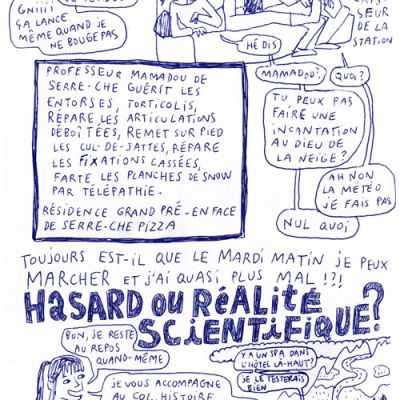 GNIIII
ÇA LANCE
MÊME QUAND JE
NE BOUGE PAS
SEUR
DE LA
STATION
HÉ DIS
MAMADOU?
QUOI?
TU PEUX PAS
FAIRE UNE
INCANTATION
AU DIEU DE
LA NEIGE?
AH NON
LA MÉTÉO
JE FAIS PAS
NUL QUOI
PROFESSEUR MAMADOU DE
SERRE-CHE GUÉRIT LES
ENTORSES, TORTICOLIS,
RÉPARE LES ARTICULATIONS
DÉBOÎTÉES, REMET SUR PIED
LES CUL-DE-JATTES, RÉPARE
LES FIXATIONS CASSÉES,
FARTE LES PLANCHES DE SNOW
PAR TÉLÉPATHIE.
RÉSIDENCE GRAND PRÉ - EN FACE
DE SERRE-CHE PIZZA
TOUJOURS EST-IL QUE LE MARDI MATIN JE PEUX
MARCHER ET J'AI QUASI PLUS MAL !?!
HASARD OU RÉALITÉ
SCIENTIFIQUE?
BON, JE RESTE
AU REPOS
QUAND-MÊME
Y A UN SPA DANS
L'HÔTEL LÀ-HAUT?
JE LE TESTERAIS
BIEN
JE VOUS ACCOMPAGNE
AU COL, HISTOIRE